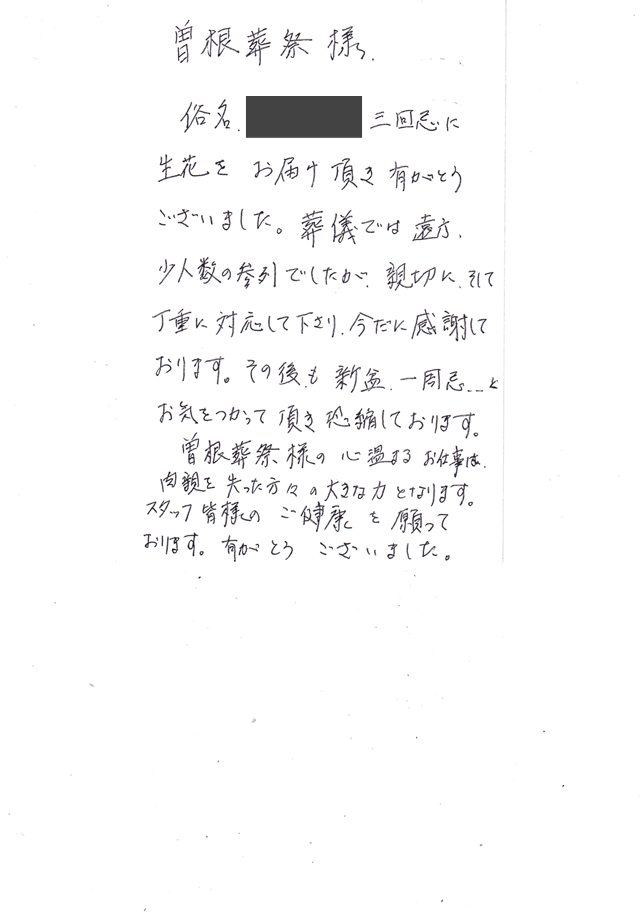 曽根葬祭様
俗名、 三回忌に
生花を お届け頂き有がとう
ございました。葬儀では遠方、
少人数の参列でしたが、親切に、そして
丁重に対応して下さり、今だに感謝して
おります。その後も新盆、一周忌…と
お気をつかって頂き恐縮しております。
曽根葬祭様の心温まるお仕事は、
肉親を失った方々の大きな力となります。
スタッフ皆様のご健康を願って
おります。有がとうございました。